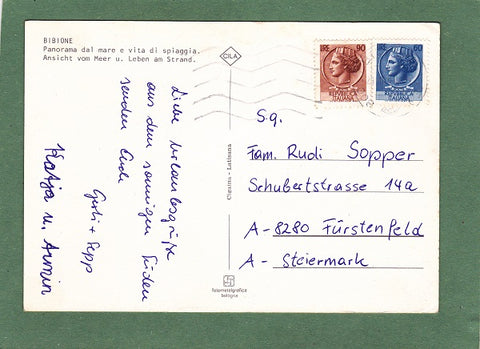 BIBIONE
Panorama dal mare e vita di spiaggia.
Ansicht vom Meer u. Leben am Strand.
CILA
LIRE 90
LIRE 60
Liebe Urlaubsgrüße
aus dem sonnigen Süden
senden Euch
Gusti + Sepp
Katja u. Armin
Latisana
fotometalgrafica
bologna
Sg.
Fam. Rudi Sopper
Schubertstrasse 14a
A-8280 Fürstenfeld
A-Steiermark